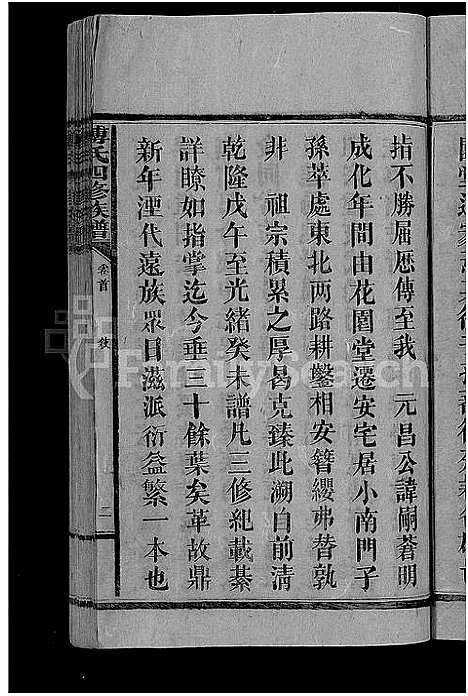 指不勝屈歷傳至我　元昌公諱嗣蒼明
成化年間由花園堂遷安宅居小南門子
孫萃處東北兩路耕鑿相安簪纓弗替孰
非　祖宗積累之厚曷克臻此溯自前清
乾隆戊午至光緒癸未譜凡三修紀載綦
詳瞭如指掌迄今垂三十餘葉矣革故鼎
新年湮代遠族眾目滋派衍益繁一本也
氏四修族譜　卷首　二
FamilySearch